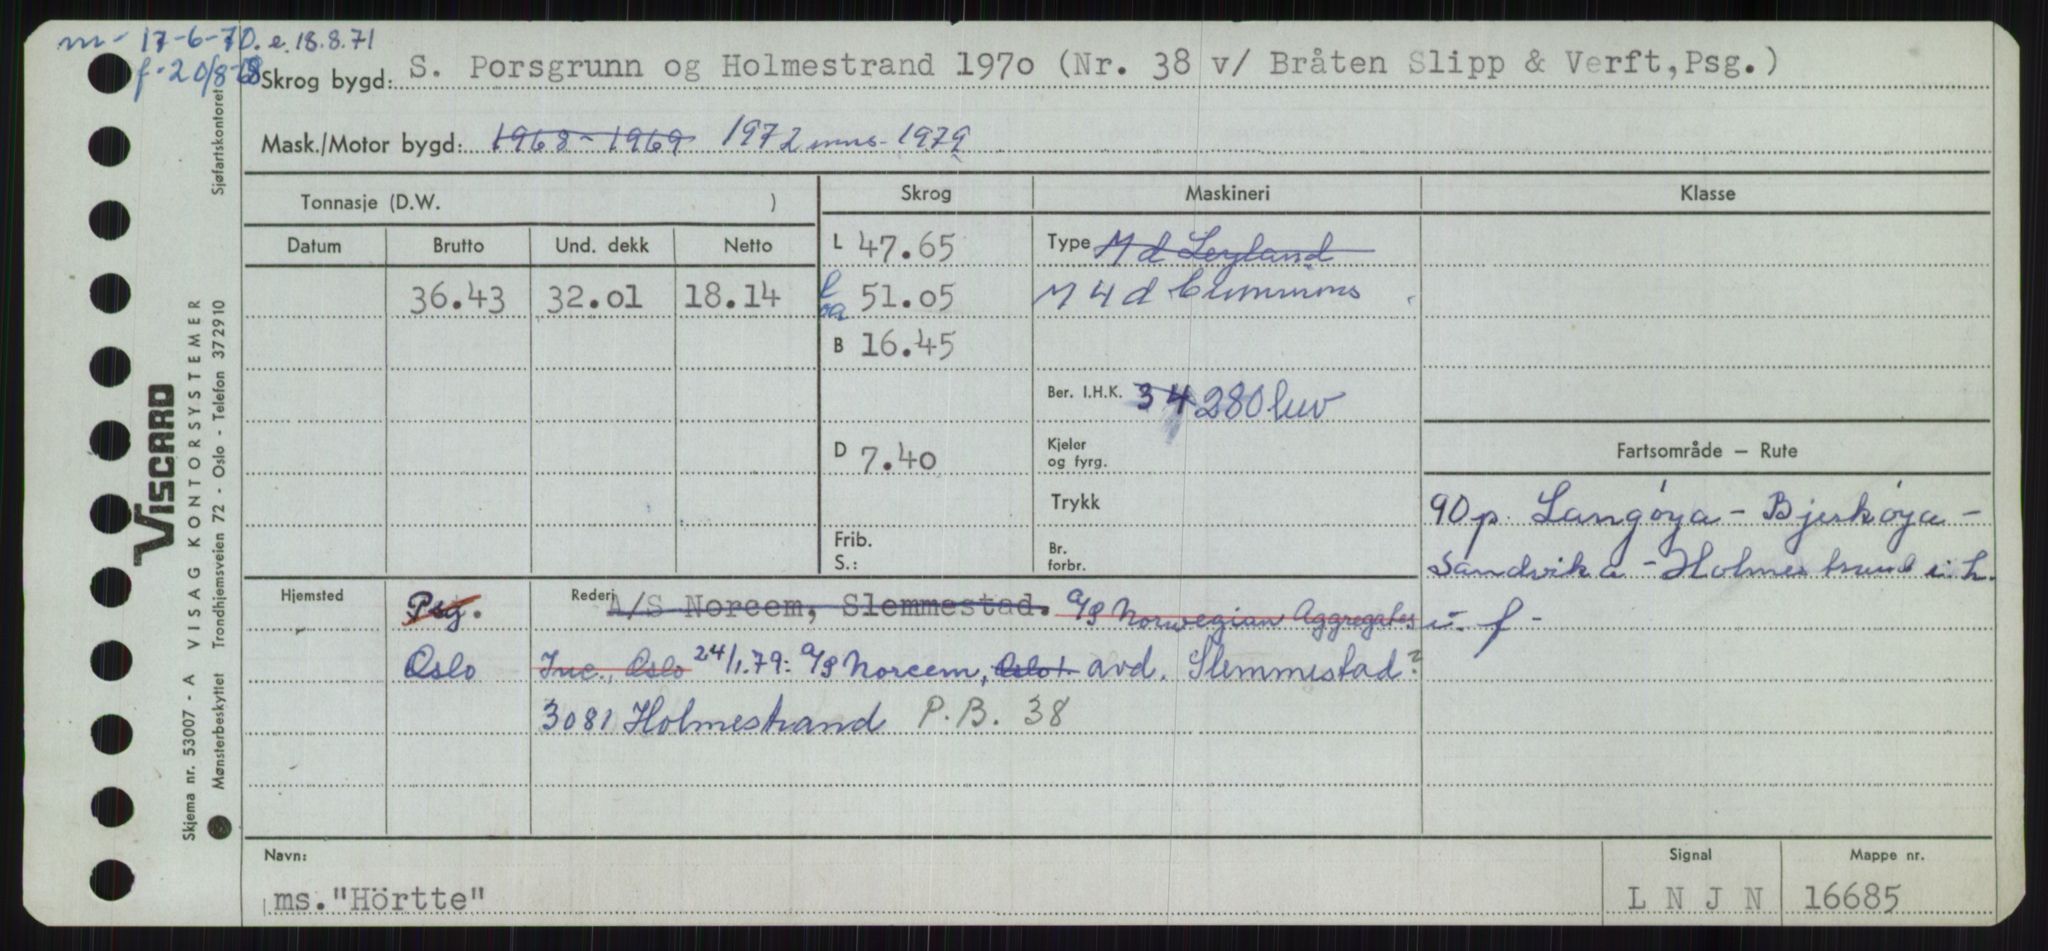 m- 17-6-70. e. 18.8.71
f-20/8-68
Skrog bygd: S. Porsgrunn og Holmestrand 1970 (Nr. 38 v/ Bråten Slipp & Verft, Psg.)
Mask./Motor bygd: 1968-1969 1972 inns. 1979
Tonnasje (D.W. )
Skrog
Maskineri
Klasse
Datum Brutto Und. dekk Netto
36.43 32.01 18.14
L 47.65
l oa 51.05
B 16.45
D 7.40
Frib.
S.:
Type M d Leyland
M 4 d Cummins
Ber. I.H.K. 34 280
Kjeler
og fyrg.
Trykk
Br.
forbr.
Fartsområde – Rute
90 p. Langøya - Bjerkøya -
Sandvika - Holmestrand i. h.
u. f-
Hjemsted Psg. Rederi A/S Norcem, Slemmestad. A/S Norwegian Aggregates
Oslo Inc., Oslo 24/1.79: A/S Norcem, Oslo avd. Slemmestad?
3081 Holmestrand P.B. 38
Navn:
ms. "Hörtte"
Signal
L N J N
Mappe nr.
16685
VISCARD
VISAG KONTORSYSTEMER
Skjema nr. 53007 - A
Mønsterbeskyttet Trondhjemsveien 72 - Oslo - Telefon 372910
Sjøfartskontoret